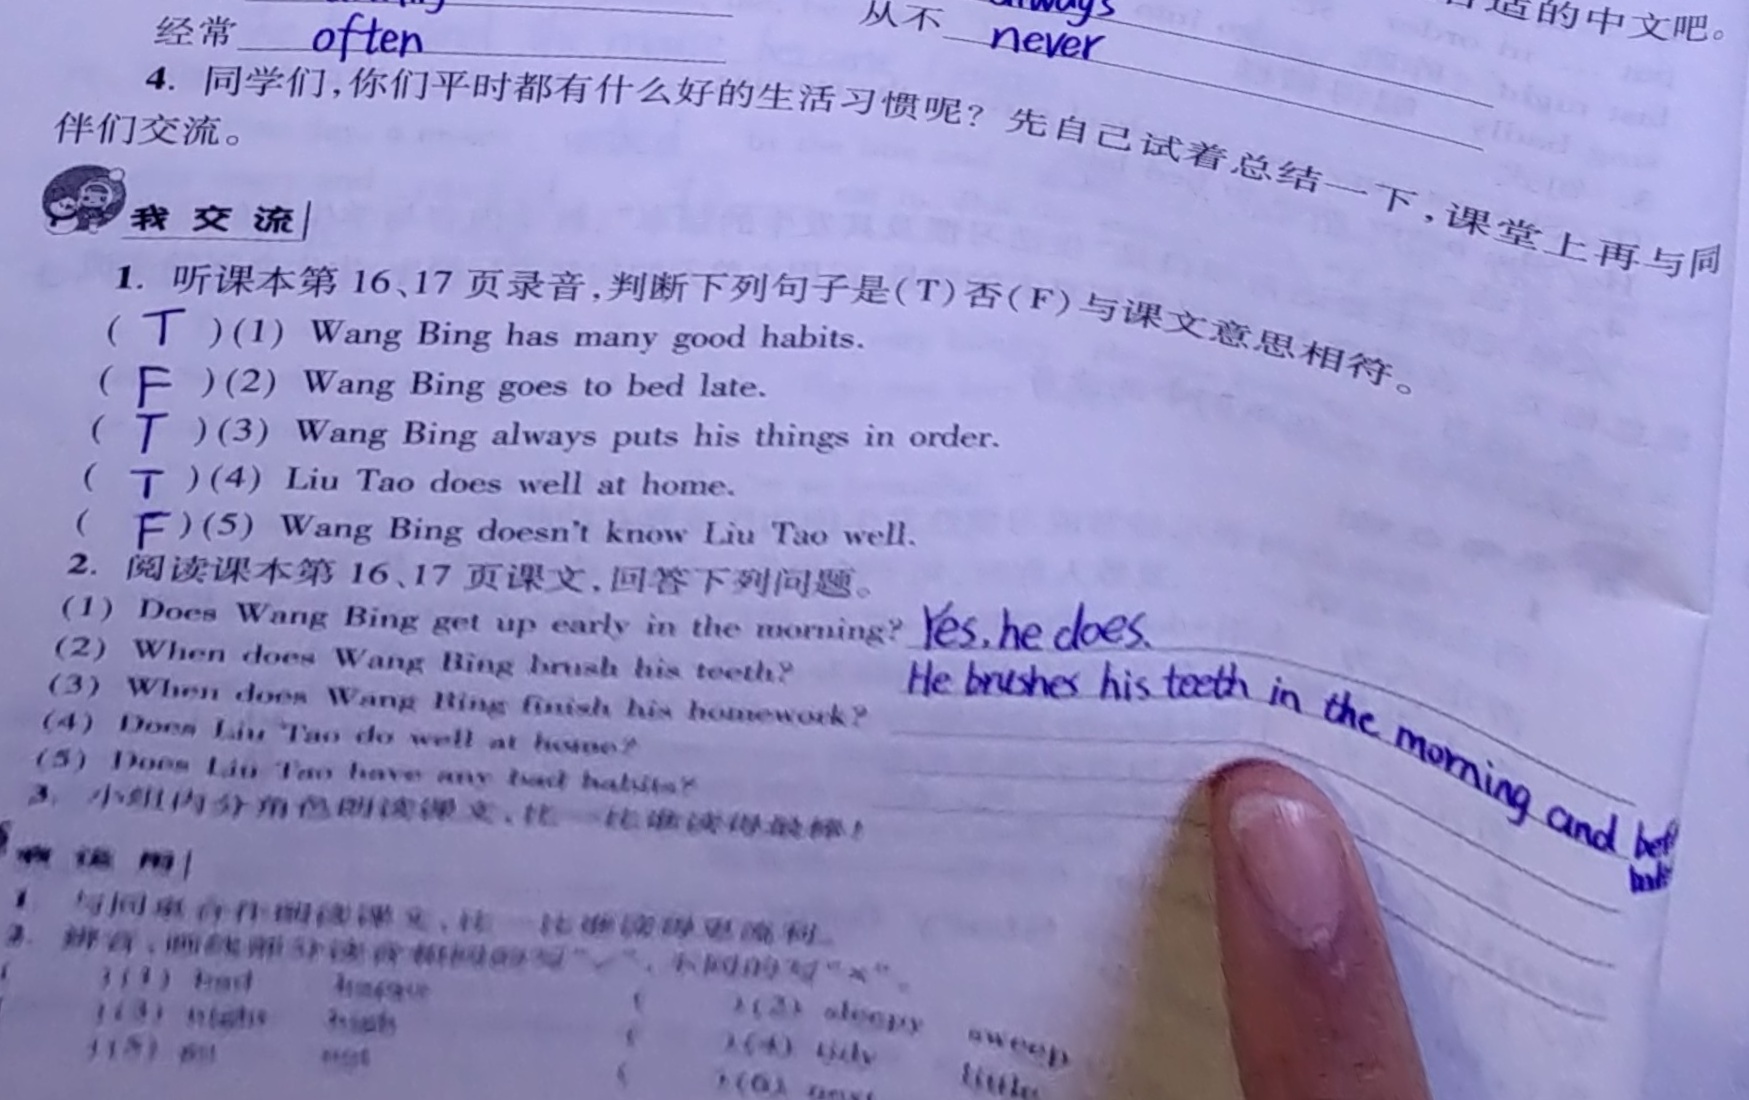 always
合适的中文吧。
经常 often 从不 never
4. 同学们,你们平时都有什么好的生活习惯呢? 先自己试着总结一下,课堂上再与同
伴们交流。
我交流
1. 听课本第 16、17 页录音,判断下列句子是(T)否(F)与课文意思相符。
( T )(1) Wang Bing has many good habits.
( F )(2) Wang Bing goes to bed late.
( T )(3) Wang Bing always puts his things in order.
( T )(4) Liu Tao does well at home.
( F )(5) Wang Bing doesn't know Liu Tao well.
2. 阅读课本第 16、17 页课文,回答下列问题。
(1) Does Wang Bing get up early in the morning? Yes, he does.
(2) When does Wang Bing brush his teeth? He brushes his teeth in the morning and bef
(3) When does Wang Bing finish his homework?
(4) Does Liu Tao do well at home?
(5) Does Liu Tao have any bad habits?
3. 小组内分角色朗读课文,比一比谁读得最棒!
1. 与同桌合作朗读课文,比一比谁读得更流利。
2. 拼音,画线部分读音相同的写“✓”,不同的写“×”。
)(1)
)(3) high
( )(2) sleepy sweep
)(5)
( )(4) tidy little
( )(6)